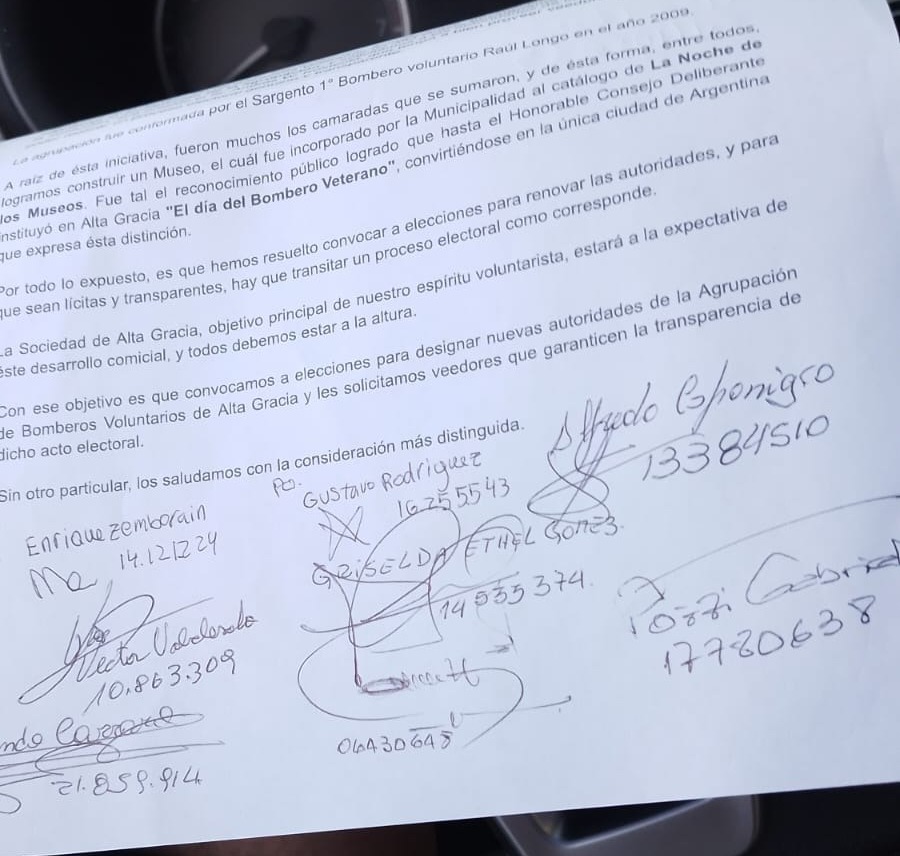 La agrupación fue conformada por el Sargento 1° Bombero voluntario Raúl Longo en el año 2009.
A raíz de ésta iniciativa, fueron muchos los camaradas que se sumaron, y de ésta forma, entre todos,
logramos construir un Museo, el cuál fue incorporado por la Municipalidad al catálogo de La Noche de
los Museos. Fue tal el reconocimiento público logrado que hasta el Honorable Consejo Deliberante
instituyó en Alta Gracia "El día del Bombero Veterano", convirtiéndose en la única ciudad de Argentina
que expresa ésta distinción.
Por todo lo expuesto, es que hemos resuelto convocar a elecciones para renovar las autoridades, y para
que sean lícitas y transparentes, hay que transitar un proceso electoral como corresponde.
La Sociedad de Alta Gracia, objetivo principal de nuestro espíritu voluntarista, estará a la expectativa de
éste desarrollo comicial, y todos debemos estar a la altura.
Con ese objetivo es que convocamos a elecciones para designar nuevas autoridades de la Agrupación
de Bomberos Voluntarios de Alta Gracia y les solicitamos veedores que garanticen la transparencia de
dicho acto electoral.
Sin otro particular, los saludamos con la consideración más distinguida.
Alfredo Caponigro
13384510
Gustavo Rodriguez
16255543
Enrique Zemborain
14.121224
GRISELDA ETHEL GOMEZ
14535374.
Gabriel
17780638
Hector
10.863.309
06430645
21.859.914